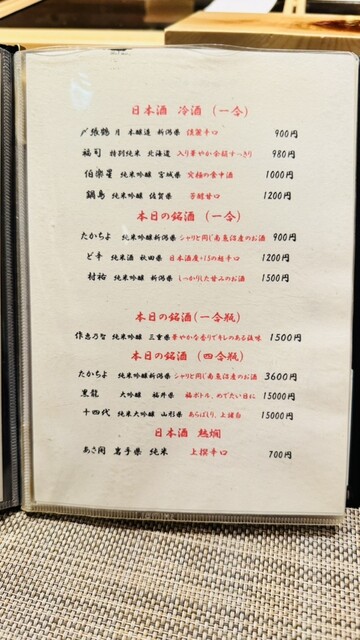 日本酒 冷酒 (一合)
〆張鶴 月 本醸造 新潟県 淡麗辛口 900円
福司 特別純米 北海道 入り華やか余韻すっきり 980円
伯楽星 純米吟醸 宮城県 究極の食中酒 1000円
鍋島 純米吟醸 佐賀県 芳醇甘口 1200円
本日の銘酒 (一合)
たかちよ 純米吟醸新潟県 シャリと同じ南魚沼産のお酒 900円
ど辛 純米酒 秋田県 日本酒度+15の超辛口 1200円
村祐 純米吟醸 新潟県 しっかりした甘みのお酒 1500円
本日の銘酒(一合瓶)
作 恵乃智 純米吟醸 三重県 華やかな香りでキレのある後味 1500円
本日の銘酒 (四合瓶)
たかちよ 純米吟醸新潟県 シャリと同じ南魚沼産のお酒 3600円
黒龍 大吟醸 福井県 福ボトル、めでたい日に 15000円
十四代 純米大吟醸 山形県 あらばしり、上諸白 15000円
日本酒 熱燗
あさ開 岩手県 純米 上撰辛口 700円